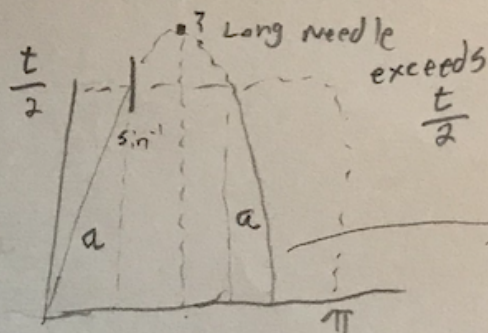 ? Long Needle
exceeds
t/2
t/2
sin⁻¹
a
a
π